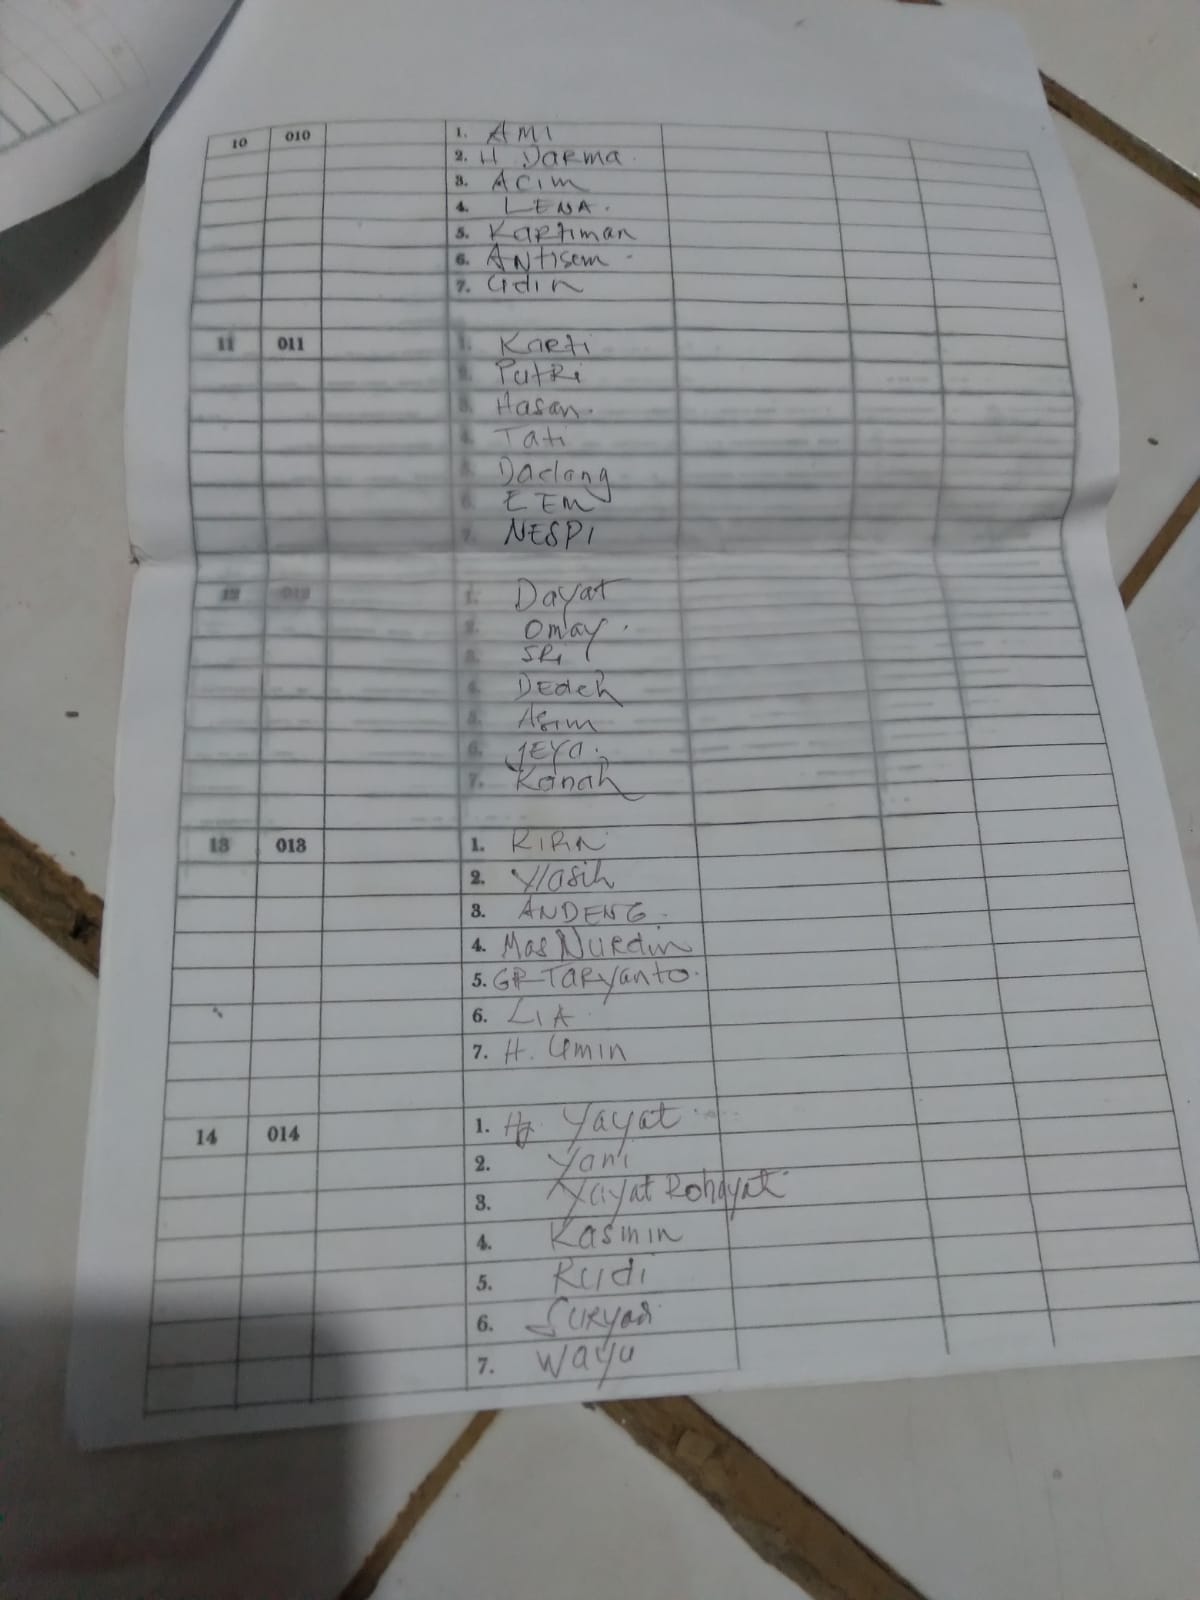 10 010 1. AMI
2. H DARMA
3. ACIM
4. LENA.
5. KARTIMAN
6. ANTISEM
7. Udin
11 011 1. KARTI
2. PUTRI
3. Hasan.
4. Tati
5. Dadang
6. EEM
7. NESPI
12 012 1. Dayat
2. Omay.
3. SRI
4. DEdeh
5. Asim
6. JEYA.
7. Kanah
13 013 1.
2.
3. ANDENG.
4. Mas NURdin
5. GR TARYanto.
6. LIA
7. H. Umin
14 014 1. Hj. Yayat
2. Yani
3. Yayat Rohayat
4. Kasmin
5. Rudi
6. SURYadi
7. Wayu